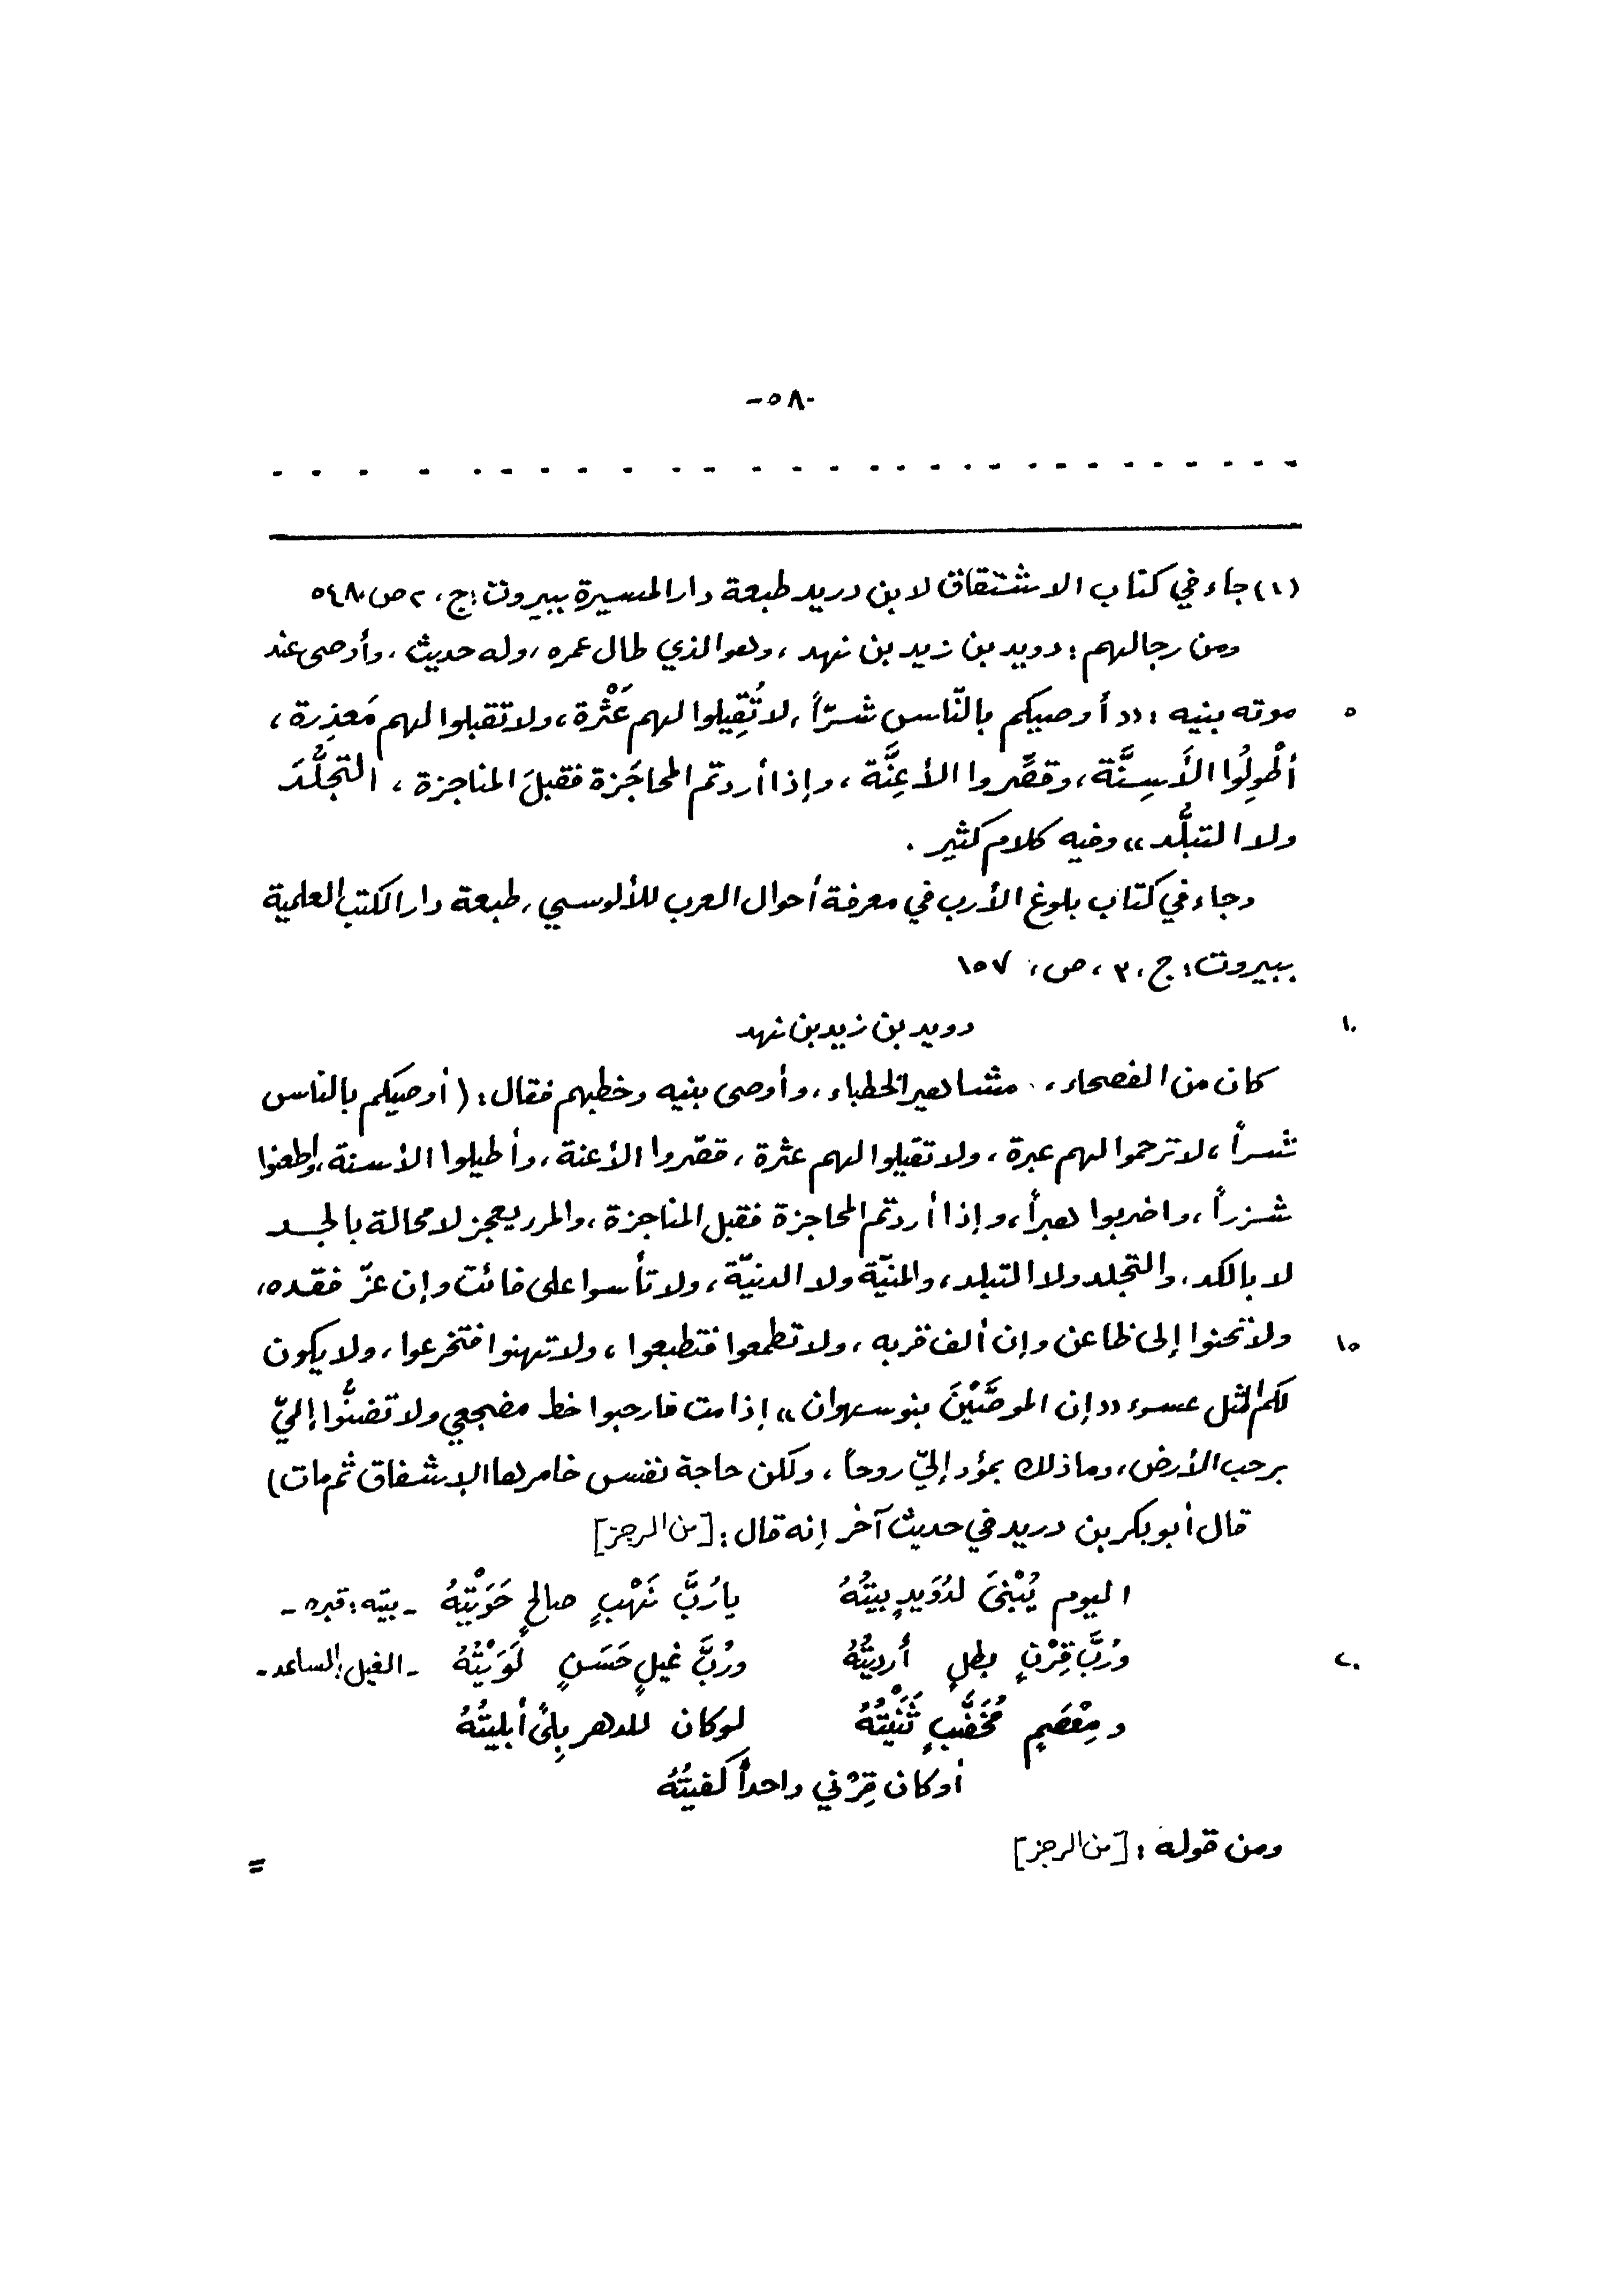 -٥٨-
(١) جاء في كتاب الاشتقاق لابن دريد طبعة دار المسيرة ببيروت: ج، ٢ ص، ٥٤٨
ومن رجالهم: دويد بن زيد بن نهد، وهو الذي طال عمره، وله حديث، وأوصى عند
٥ موته بنيه: «أوصيكم بالنّاس شرّاً، لا تُقِيلوا لهم عَثْرة، ولا تقبلوا لهم مَعذِرة،
أطْولُوا الأَسِنَّة، وقصِّروا الأعِنَّة، وإذا أردتم المحاجَزة فقبلَ المناجزة، التجلُّدَ
ولا التبلُّد» وفيه كلام كثير.
وجاء في كتاب بلوغ الأرب في معرفة أحوال العرب للألوسي، طبعة دار الكتب العلمية
ببيروت: ج، ٣، ص، ١٥٧
١٠ دويد بن زيد بن نهد
كان من الفصحاء، مشاهير الخطباء، وأوصى بنيه وخطبهم فقال: (أوصيكم بالناس
شراً، لا ترحموا لهم عبرة، ولا تقيلوا لهم عثرة، قصّروا الأعنة، وأطيلوا الأسنة، واطعنوا
شزراً، واضربوا هبراً، وإذا أردتم المحاجزة فقبل المناجزة، والمرء يعجز لا محالة بالجد
لا بالكد، والتجلد ولا التبلد، والمنيّة ولا الدنيّة، ولا تأسوا على فائت وإن عزّ فقده،
١٥ ولا تحنوا إلى ظاعن وإن ألف قربه، ولا تطمعوا فتطبعوا، ولا تهنوا فتخرعوا، ولا يكون
لكم المثل عسوء «إن الموصَّيْنَ بنو سهوان» إذا مت فارحبوا خط مضجعي ولا تضنُّوا إليّ
برحب الأرض، وما ذلك بمؤد إليّ روحاً، ولكن حاجة نفس خامرها الإشفاق ثم مات)
قال أبو بكر بن دريد في حديث آخر إنه قال: [من الرجز]
اليوم يُبْنىَ لدُوَيدٍ بيتُهُ يا رُبَّ نَهْبٍ صالحٍ حَوَيْتِهُ - بيته: قبره -
٢٠ ورُبَّ قِرْنٍ بطلٍ أرديتُهُ ورُبَّ غيلٍ حَسَنٍ لَوَيْتُهُ - الغيل: الساعد -
ومِعْصَمٍ مُخَضَّبٍ ثَنَيْتُهُ لو كان للدهر بِلىً أبليتُهُ
أو كان قِرْني واحداً كفيتُهُ
ومن قوله: [من الرجز]
=